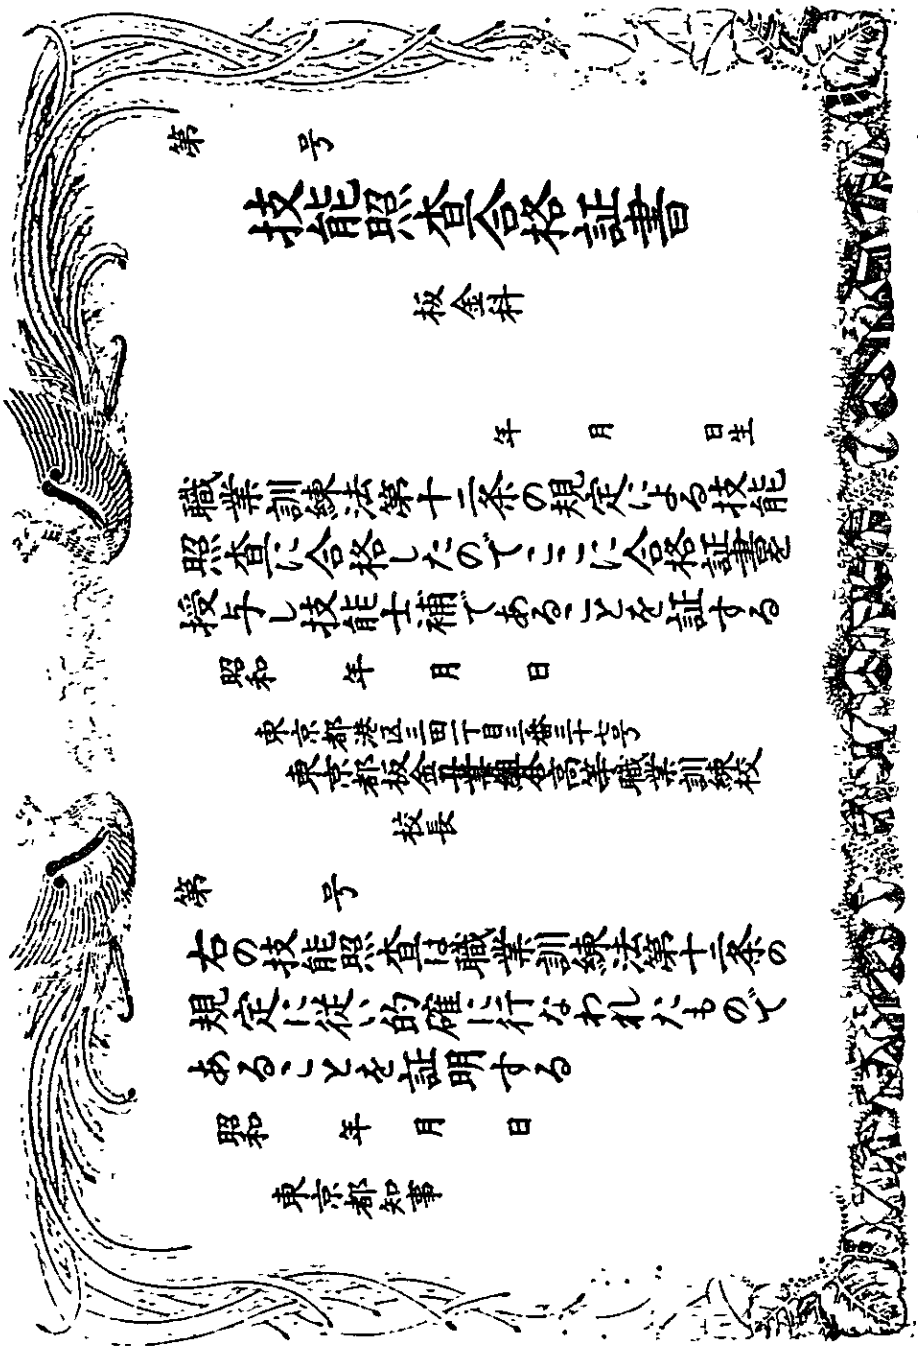 第　　　号
技能照査合格証書
板金科
年　　月　　日生
職業訓練法第十二条の規定による技能
照査に合格したのでここに合格証書を
授与し技能士補であることを証する
昭和　　年　　月　　日
東京都港区三田一丁目三番三十七号
東京都板金高等職業訓練校
校長
第　　　号
右の技能照査は職業訓練法第十二条の
規定に従い的確に行なわれたもので
あることを証明する
昭和　　年　　月　　日
東京都知事